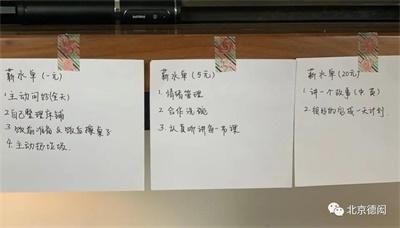 薪水单(一元)
1.主动问好(全天)
2.自己整理床铺
3.饭前准备&饭后擦桌子
4.主动扔垃圾
薪水单(5元)
1.情绪管理
2.合作洗碗
3.认真听讲每一节课
薪水单(20元)
1.讲一个故事(中英)
2.很好的完成一天计划
北京德闳